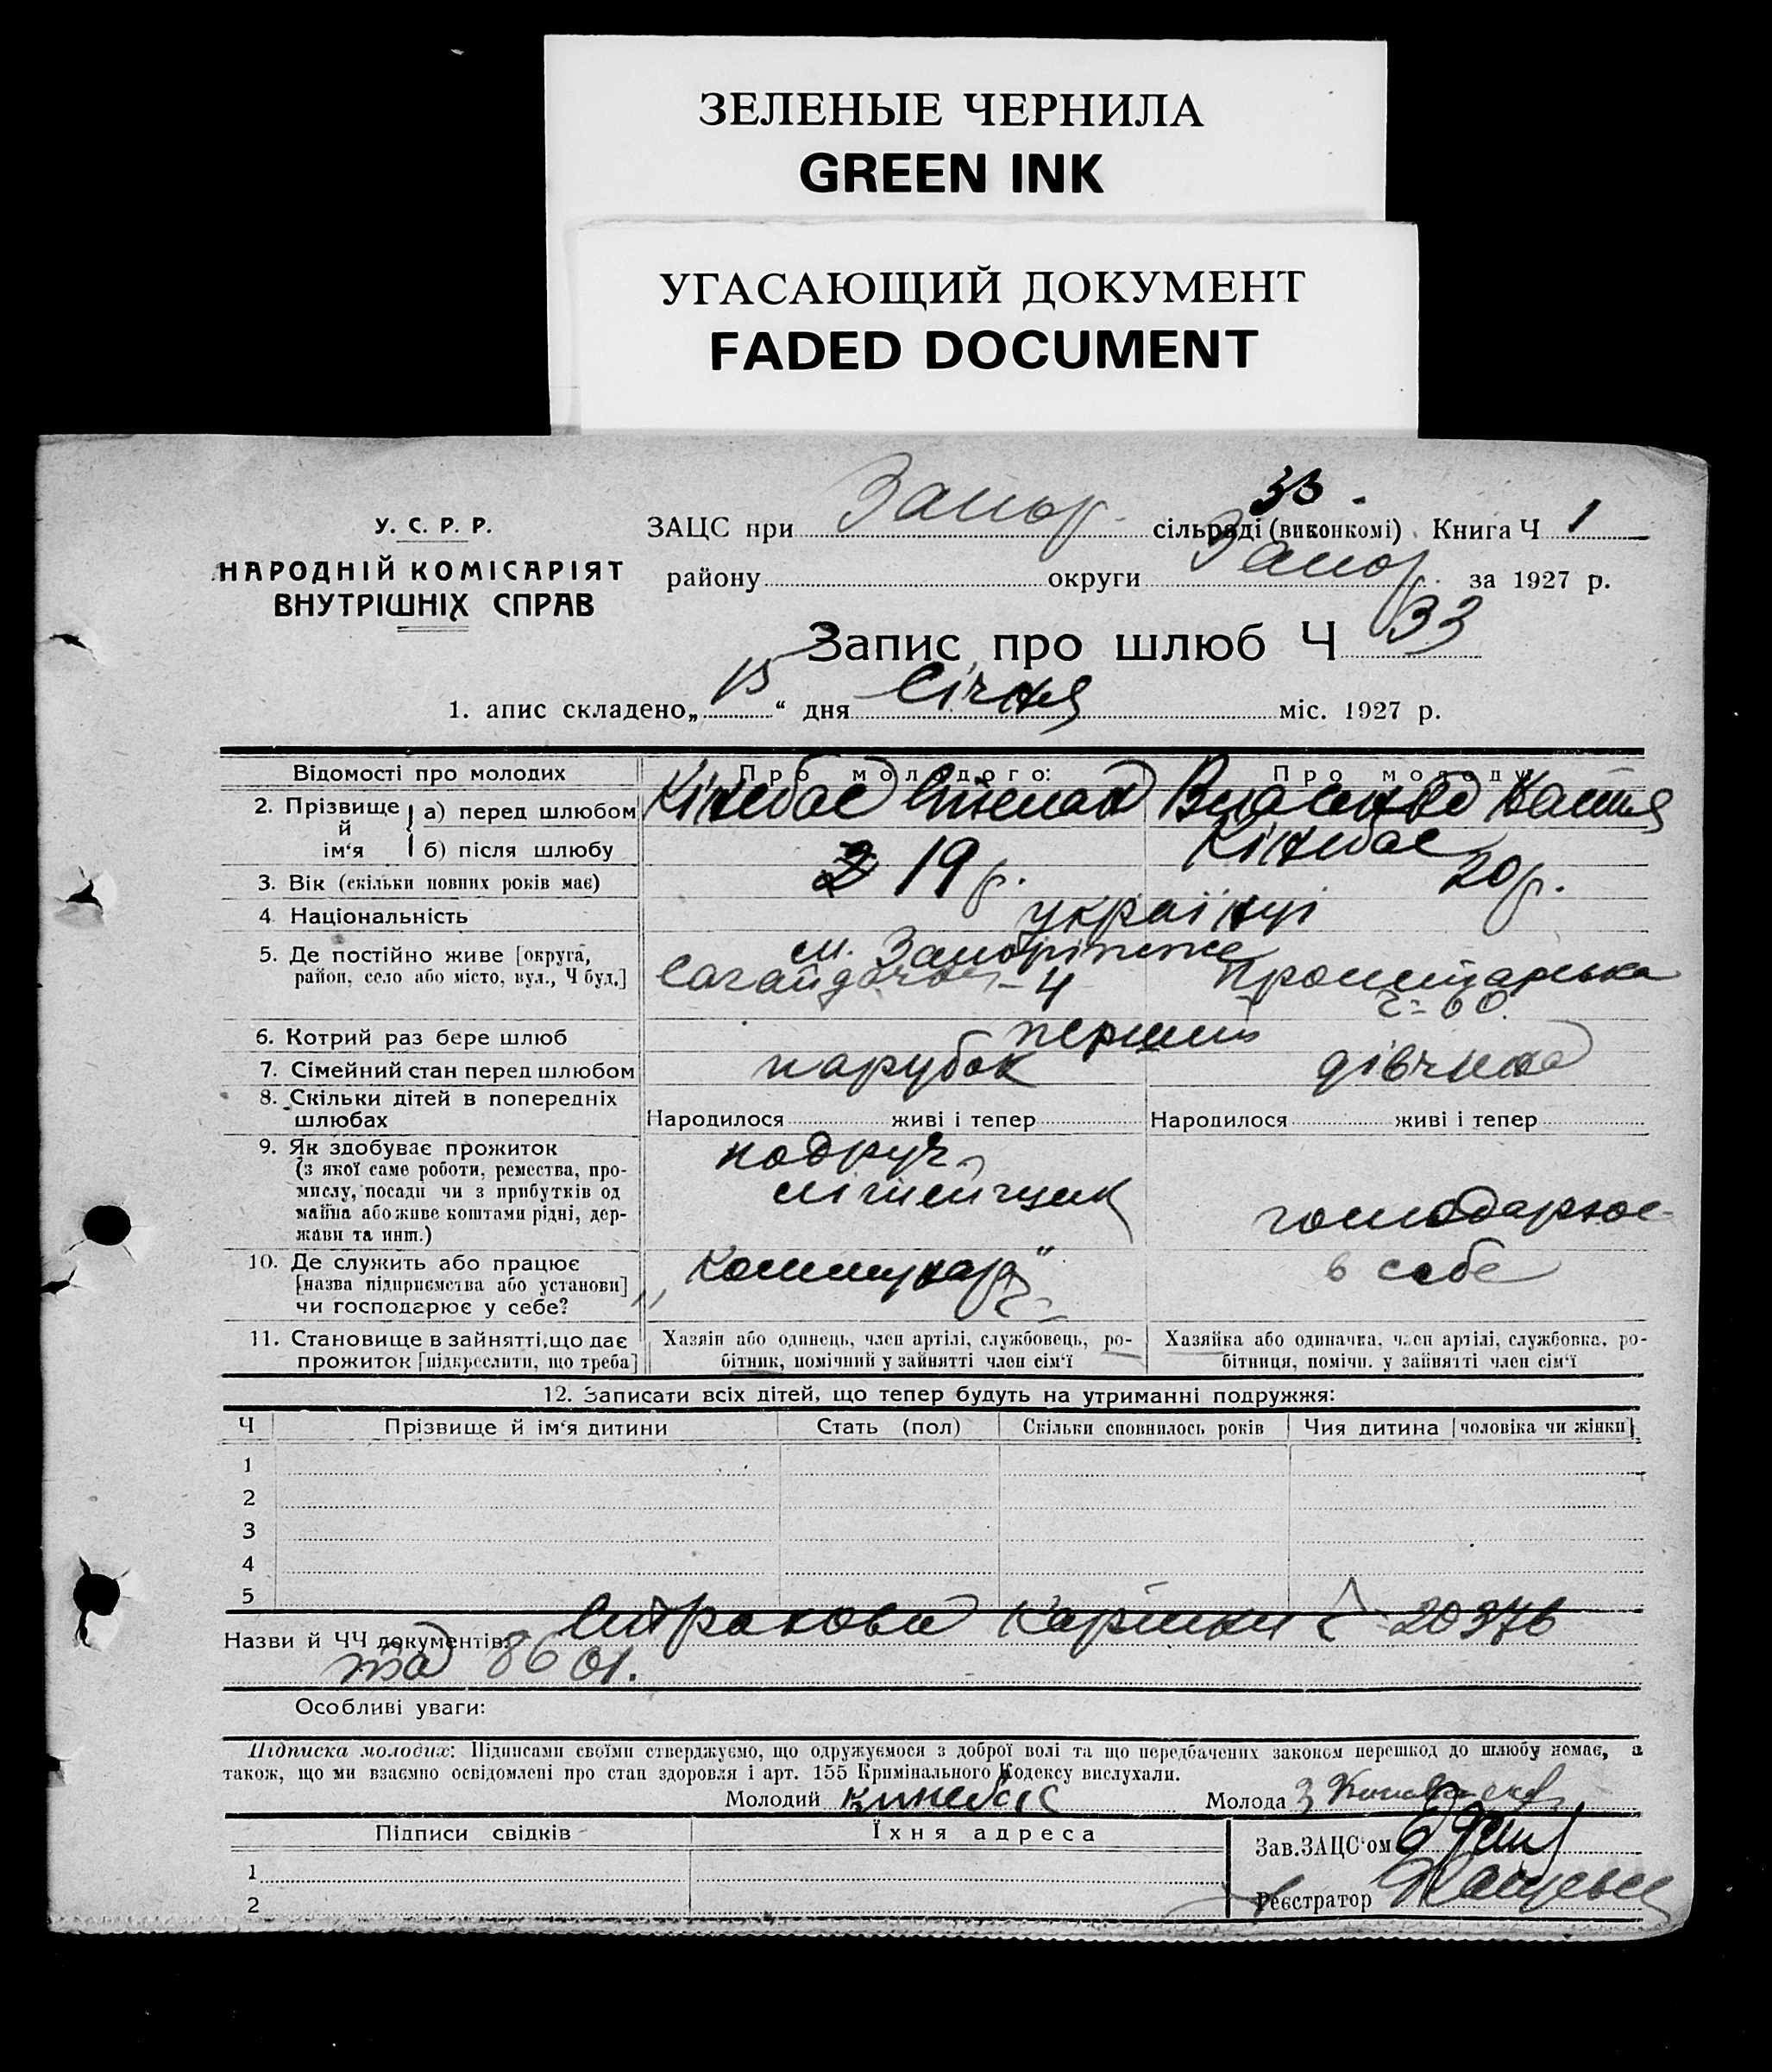 ЗЕЛЕНЫЕ ЧЕРНИЛА
GREEN INK
УГАСАЮЩИЙ ДОКУМЕНТ
FADED DOCUMENT
33.
У. С. Р. Р.
НАРОДНІЙ КОМІСАРІЯТ
ВНУТРІШНІХ СПРАВ
ЗАЦС при Запор. сільраді (виконкомі) Книга Ч 1
району округи Запор. за 1927 р.
Запис про шлюб Ч 33
1. апис складено „15“ дня Січня міс. 1927 р.
Відомості про молодих Про молодого: Про молоду:
2. Прізвище й ім‘я а) перед шлюбом Кінебас Степан Власенко Катя
б) після шлюбу Кінебас
3. Вік (скільки повних років має) 19 р. 20 р.
4 Національність українці
5. Де постійно живе [округа, район, село або місто, вул., Ч буд.] м. Запоріжжє
4
6. Котрий раз бере шлюб перший
7. Сімейний стан перед шлюбом парубок дівчина
8. Скільки дітей в попередніх шлюбах Народилося живі і тепер Народилося живі і тепер
9. Як здобуває прожиток (з якої саме роботи, ремества, промислу, посади чи з прибутків од майна або живе коштами рідні, держави та инш.) подруч. літейщик господарює
10. Де служить або працює [назва підприємства або установи] чи господарює у себе? „Коммунар" в себе
11. Становище в зайнятті, що дає прожиток [підкреслити, що треба] Хазяїн або одинець, член артілі, службовець, робітник, помічний у зайнятті член сім‘ї Хазяйка або одиначка, член артілі, службовка, робітниця, помічн. у зайнятті член сім‘ї
12. Записати всіх дітей, що тепер будуть на утриманні подружжя:
Ч Прізвище й ім‘я дитини Стать (пол) Скільки сповнилось років Чия дитина [чоловіка чи жінки]
1
2
3
4
5
Назви й ЧЧ документів: Страхові картки Ч 20376
та 8601.
Особливі уваги:
Підписка молодих: Підписами своїми стверджуємо, що одружуємося з доброї волі та що передбачених законом перешкод до шлюбу немає, а
також, що ми взаємно освідомлені про стан здоровля і арт. 155 Кримінального Кодексу вислухали.
Молодий Кинебас Молода
Підписи свідків Їхня адреса
Зав. ЗАЦС‘ом
1
Реєстратор
2